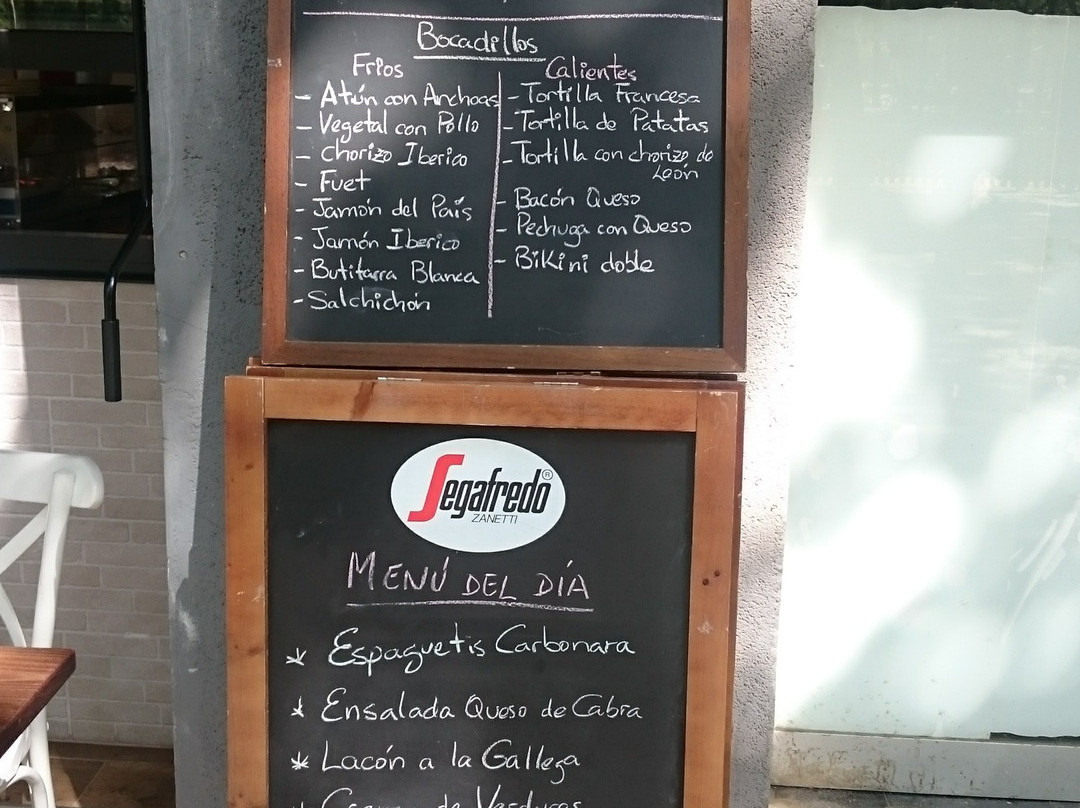 Bocadillos
Frios
- Atún con Anchoas
- Vegetal con Pollo
- Chorizo Iberico
- Fuet
- Jamón del País
- Jamón Iberico
- Butifarra Blanca
- Salchichón
Calientes
- Tortilla Francesa
- Tortilla de Patatas
- Tortilla con chorizo de
León
- Bacón Queso
- Pechuga con Queso
- Bikini doble
Segafredo®
ZANETTI
MENÚ DEL DÍA
* Espaguetis Carbonara
* Ensalada Queso de Cabra
* Lacón a la Gallega
* Crema de Verduras